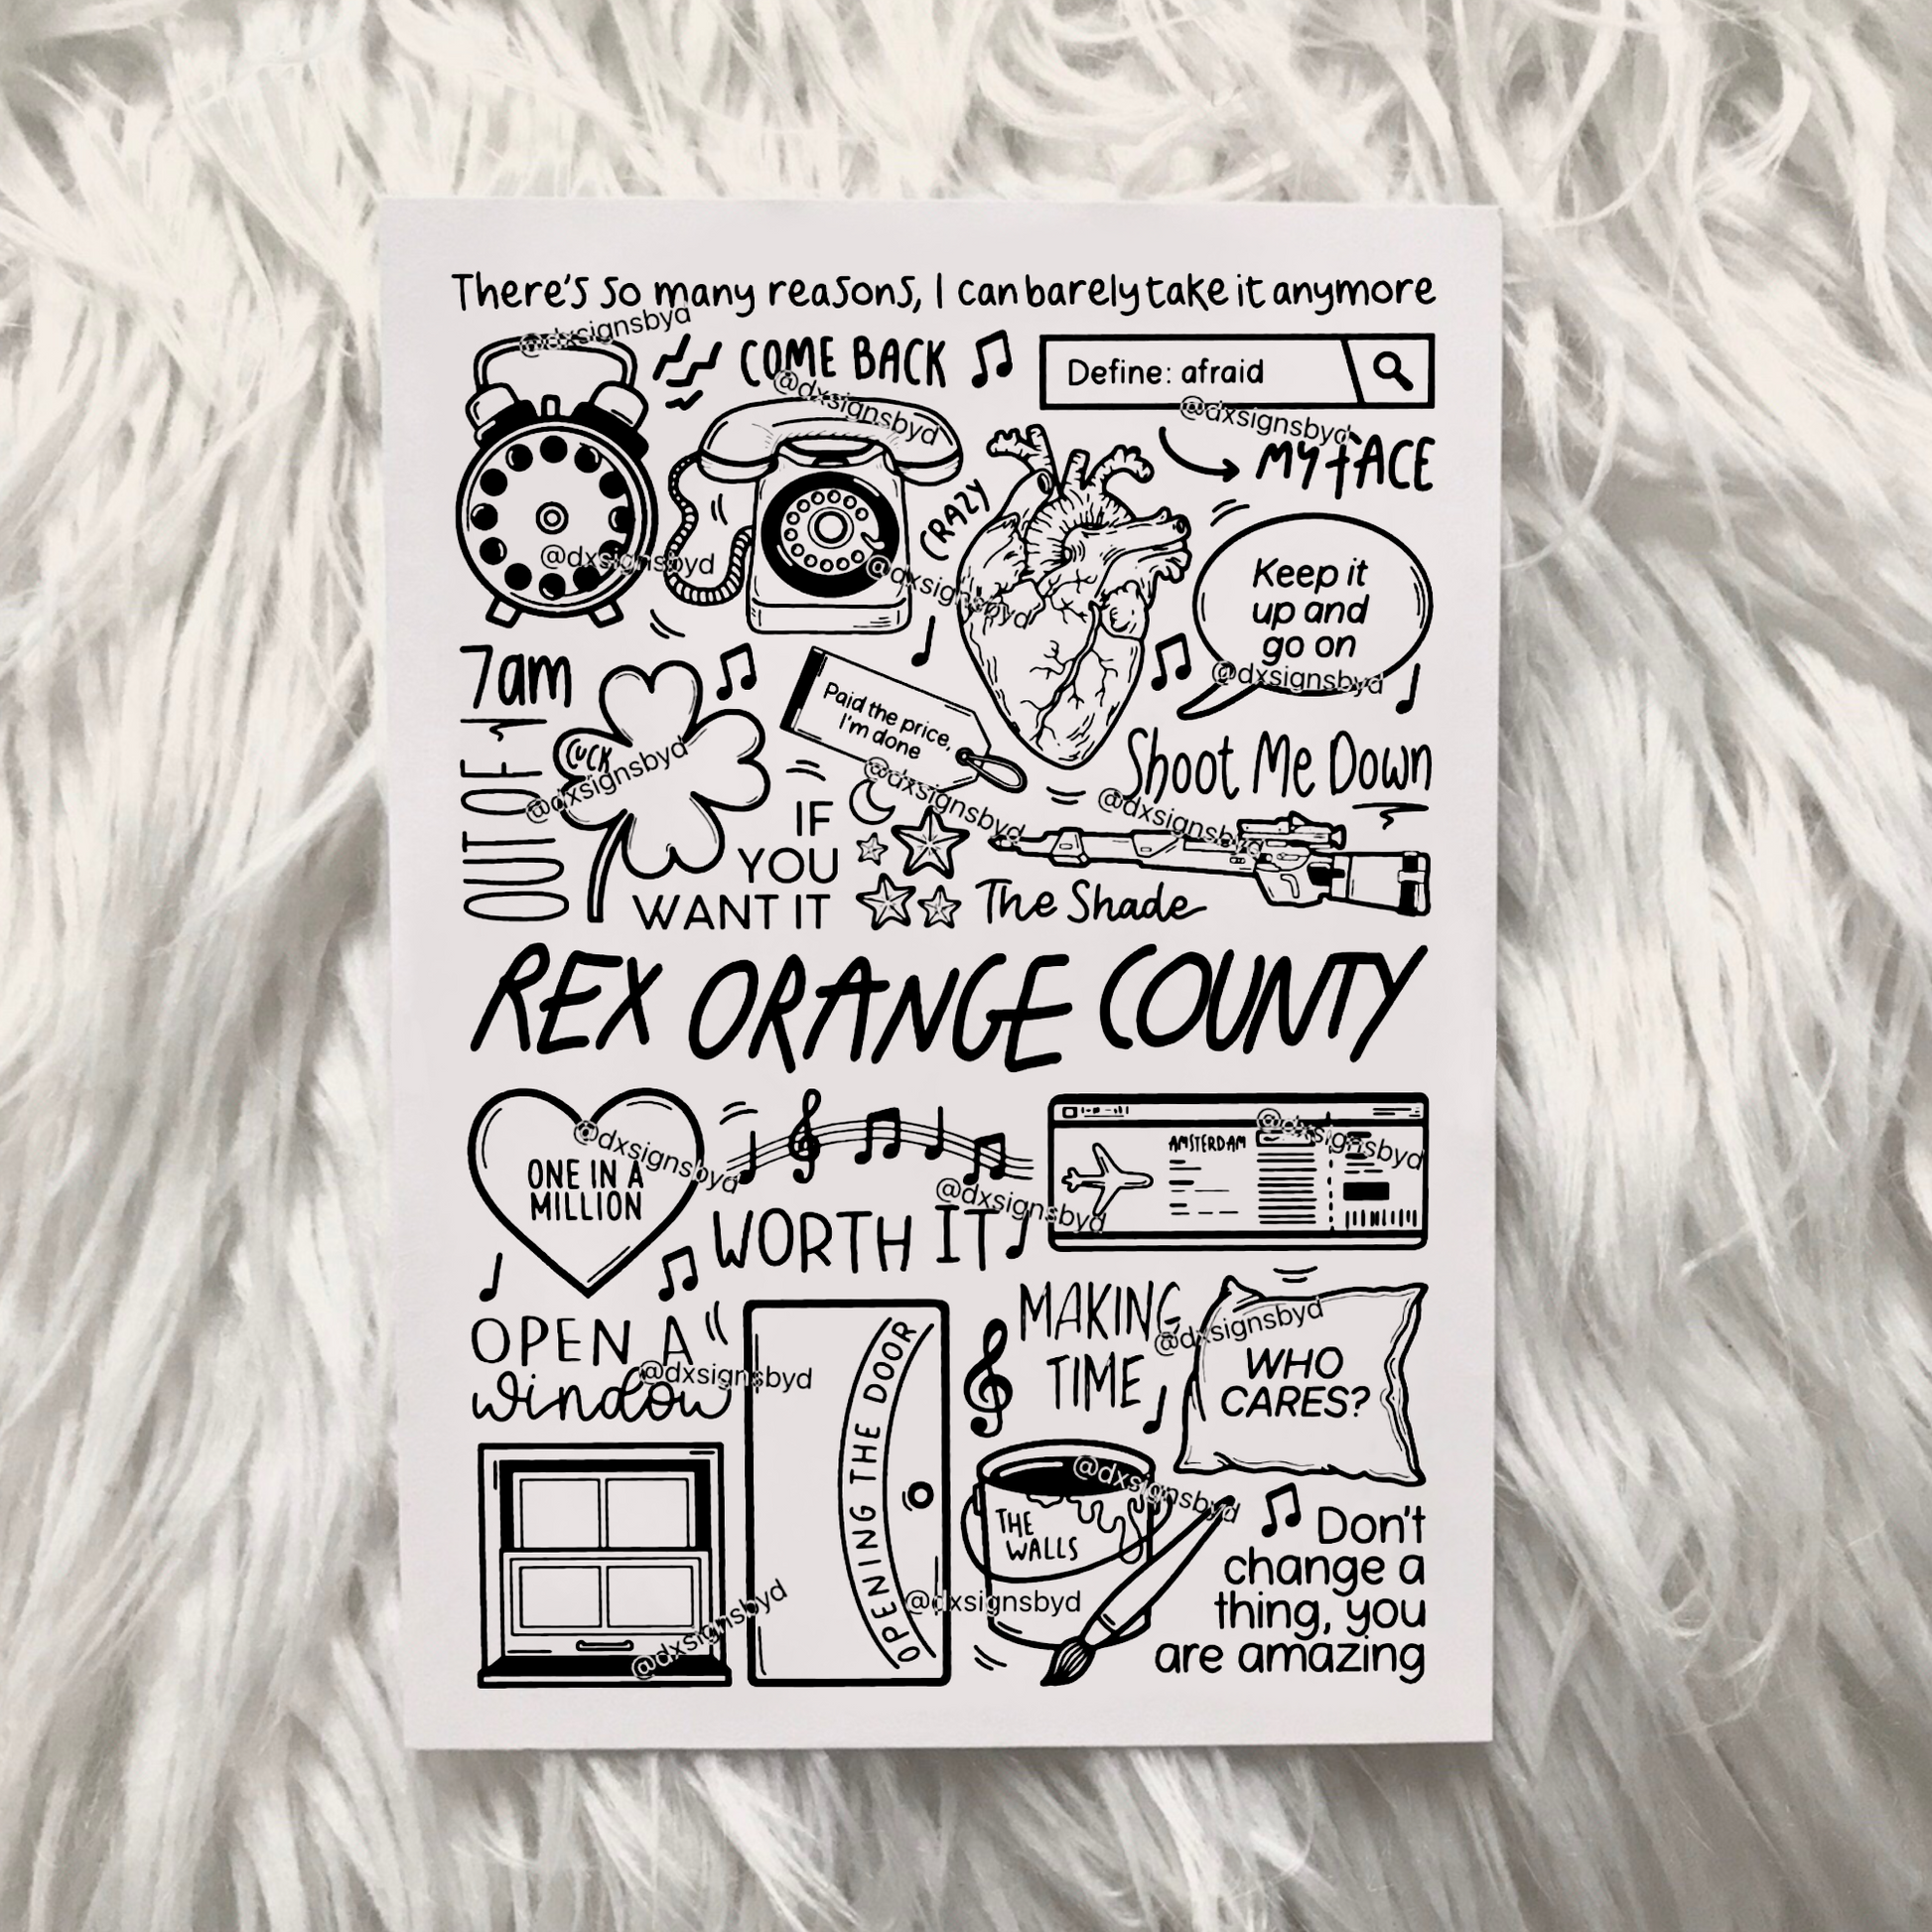 There's so many reasons, I can barely take it anymore
@dxsignsbyd
COME BACK
@dxsignsbyd
Define: afraid
@dxsignsbyd
MY fACE
CRAZY
@dxsignsbyd
@dxsignsbyd
Keep it
up and
go on
@dxsignsbyd
7am
Paid the price,
I'm done
@dxsignsbyd
OUT OF
LUCK
@dxsignsbyd
Shoot Me Down
@dxsignsbyd
IF
YOU
WANT IT
The Shade
REX ORANGE COUNTY
@dxsignsbyd
ONE IN A
MILLION
WORTH IT
@dxsignsbyd
AMSTERDAM
@dxsignsbyd
OPEN A
window
@dxsignsbyd
OPENING THE DOOR
MAKING
TIME
@dxsignsbyd
WHO
CARES?
@dxsignsbyd
THE
WALLS
@dxsignsbyd
@dxsignsbyd
Don't
change a
thing, you
are amazing